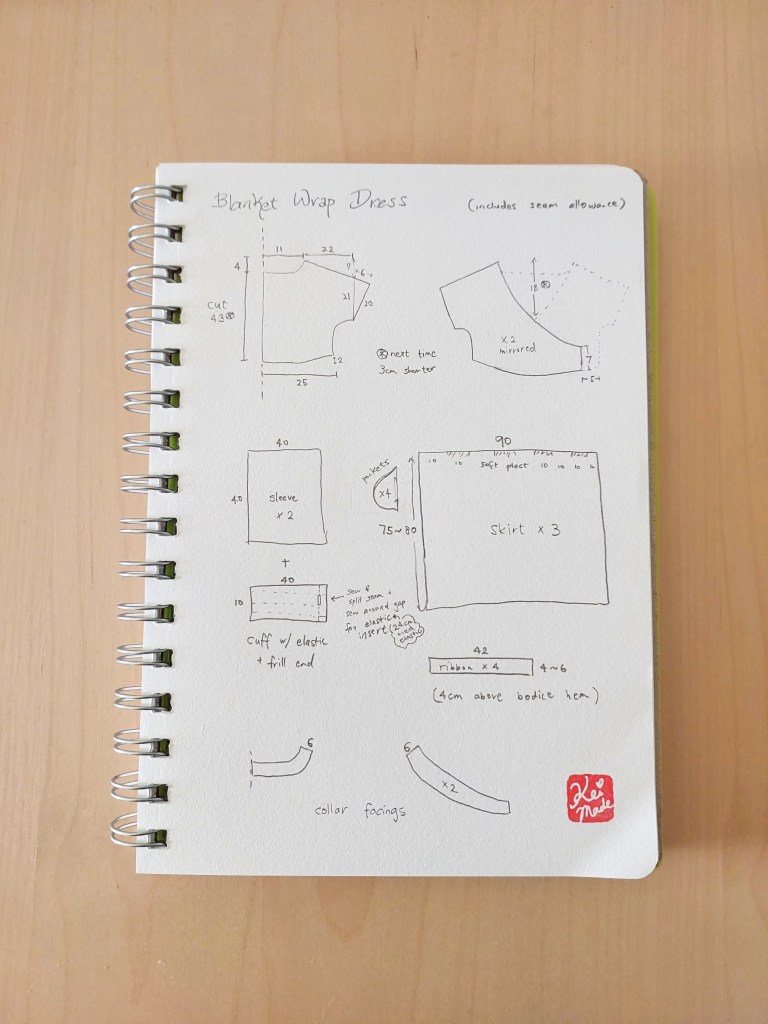 Blanket Wrap Dress
(includes seam allowance)
11
22
4
7
6
cut
43 *
21
20
12
25
* next time
3cm shorter
18 *
x 2
mirrored
7
5
40
40
sleeve
x 2
+
40
10
cuff w/ elastic
+ frill end
sew &
split seam +
sew around gap
for elastic
insert
24cm
elastic
pockets
x4
90
10
10
soft pleat
10
10
10
75~80
skirt x 3
42
ribbon x 4
4~6
(4cm above bodice hem)
6
6
x2
collar facings
Kei
Made